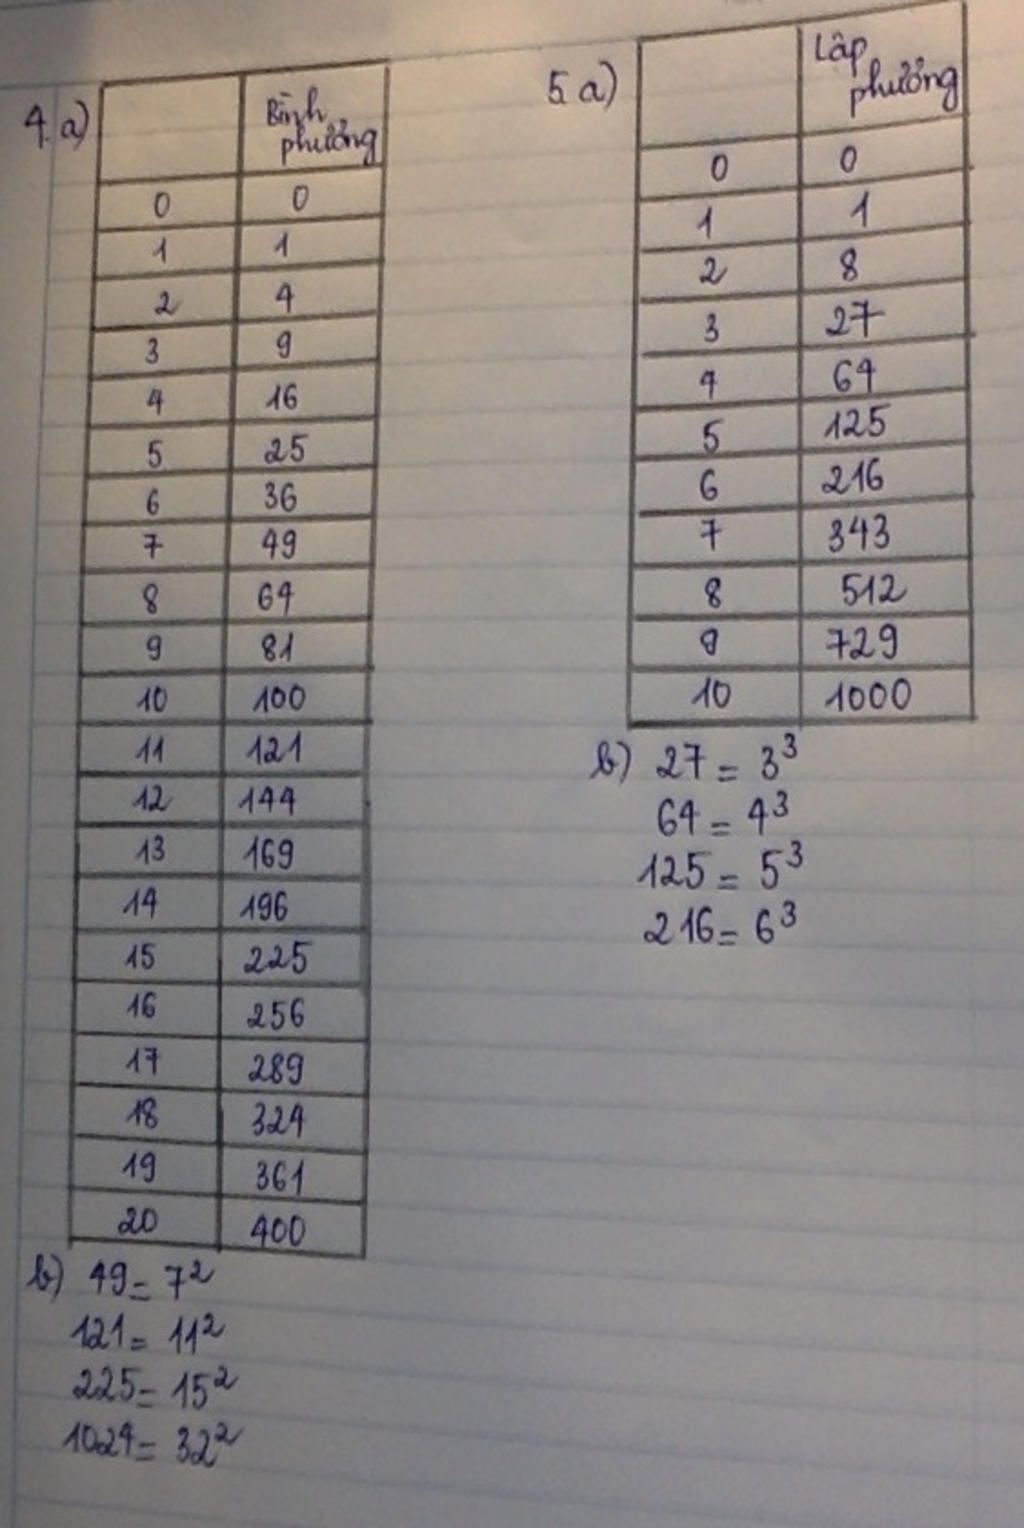 4. a)
Bình phương
0 0
1 1
2 4
3 9
4 16
5 25
6 36
7 49
8 64
9 81
10 100
11 121
12 144
13 169
14 196
15 225
16 256
17 289
18 324
19 361
20 400
b) 49 = 7²
121 = 11²
225 = 15²
1024 = 32²
5. a)
Lập phương
0 0
1 1
2 8
3 27
4 64
5 125
6 216
7 343
8 512
9 729
10 1000
b) 27 = 3³
64 = 4³
125 = 5³
216 = 6³